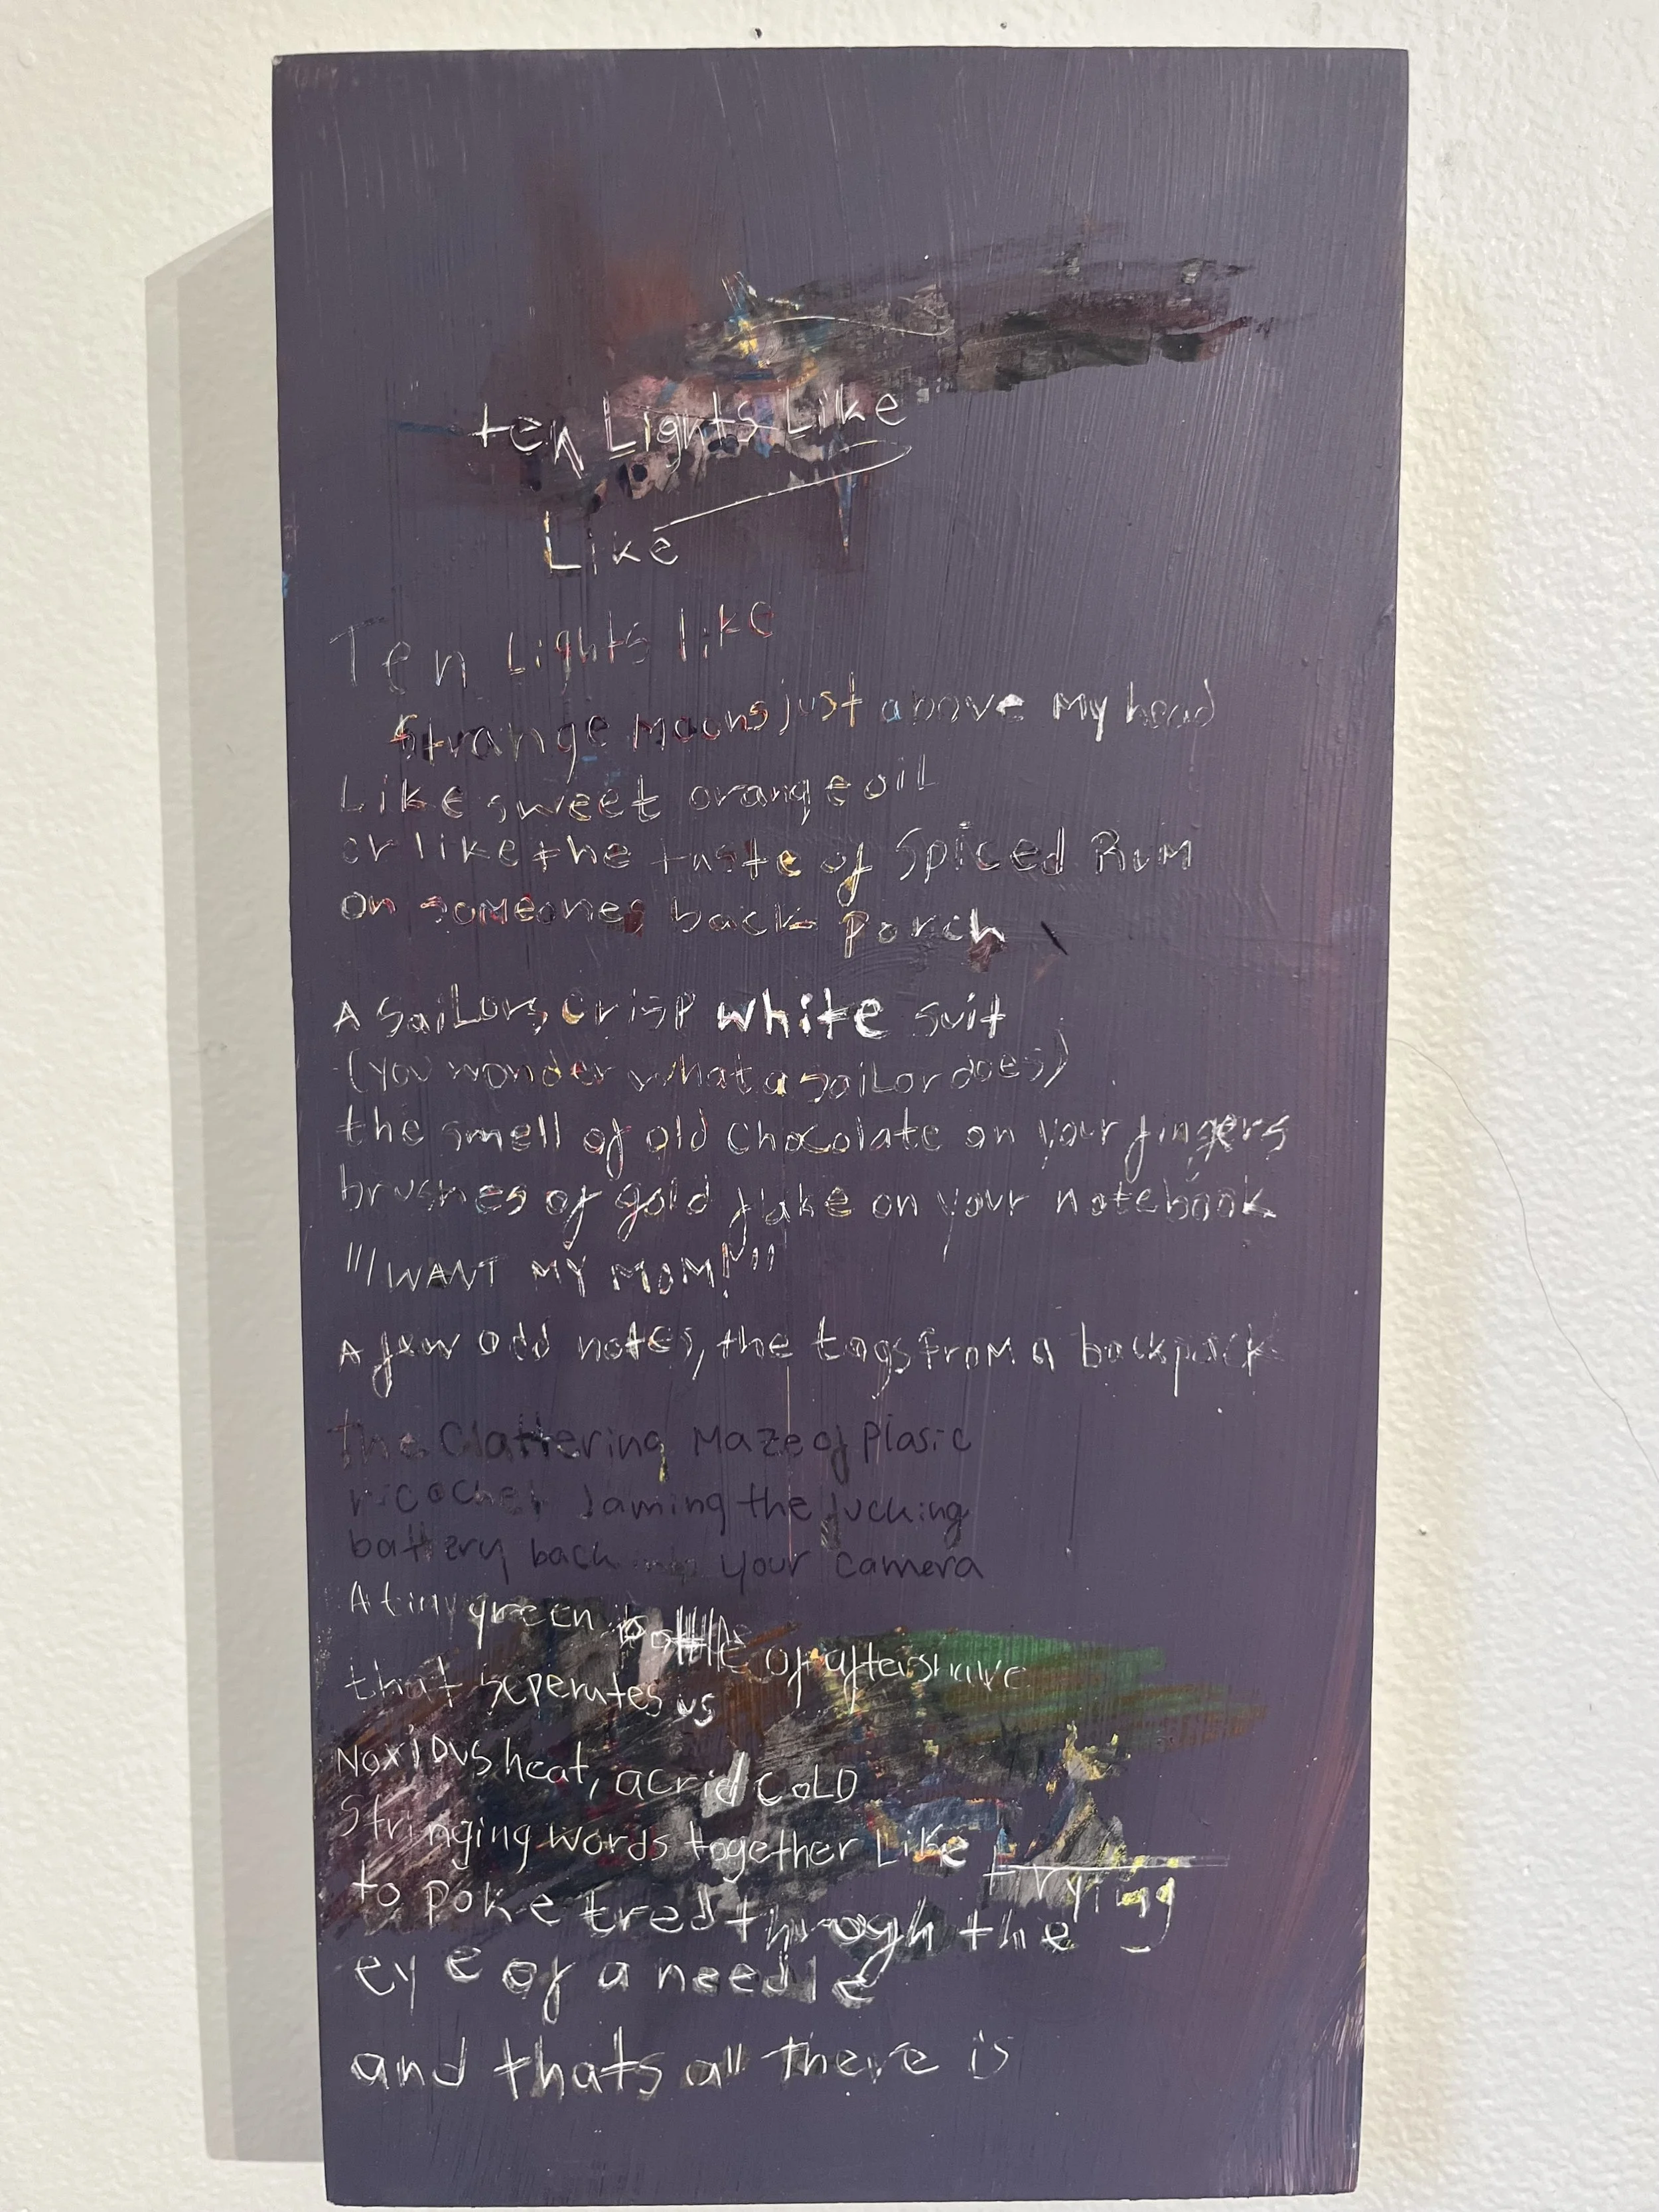 ten Lights Like
Like
Ten Lights like
Strange moons just above My head
Like sweet orange oil
or like the taste of Spiced Rum
on someones back porch
A SaiLors crisp white suit
(you wonder what a saiLor does)
the smell of old chocolate on your fingers
brushes of gold flake on your notebook
"I WANT MY MOM!"
A few odd notes, the tags from a backpack
The Clattering Maze of Plasic
ricochet Jaming the fucking
battery back into your camera
A tiny green bottle of aftershave
that seperates us
NoxiOus heat, acrid CoLD
Stringing words together Like trying
to poke tred throogh the
eye of a needle
and thats all there is